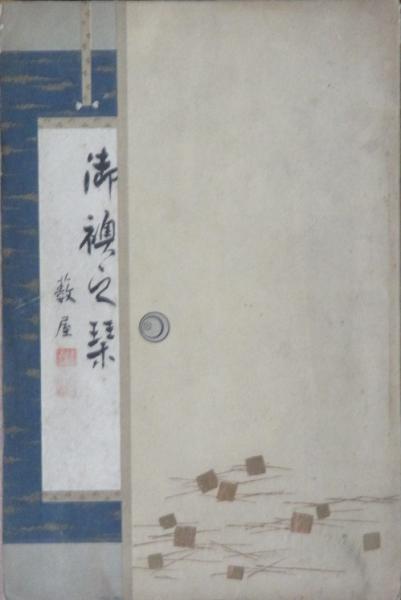 御襖之栞
薮屋